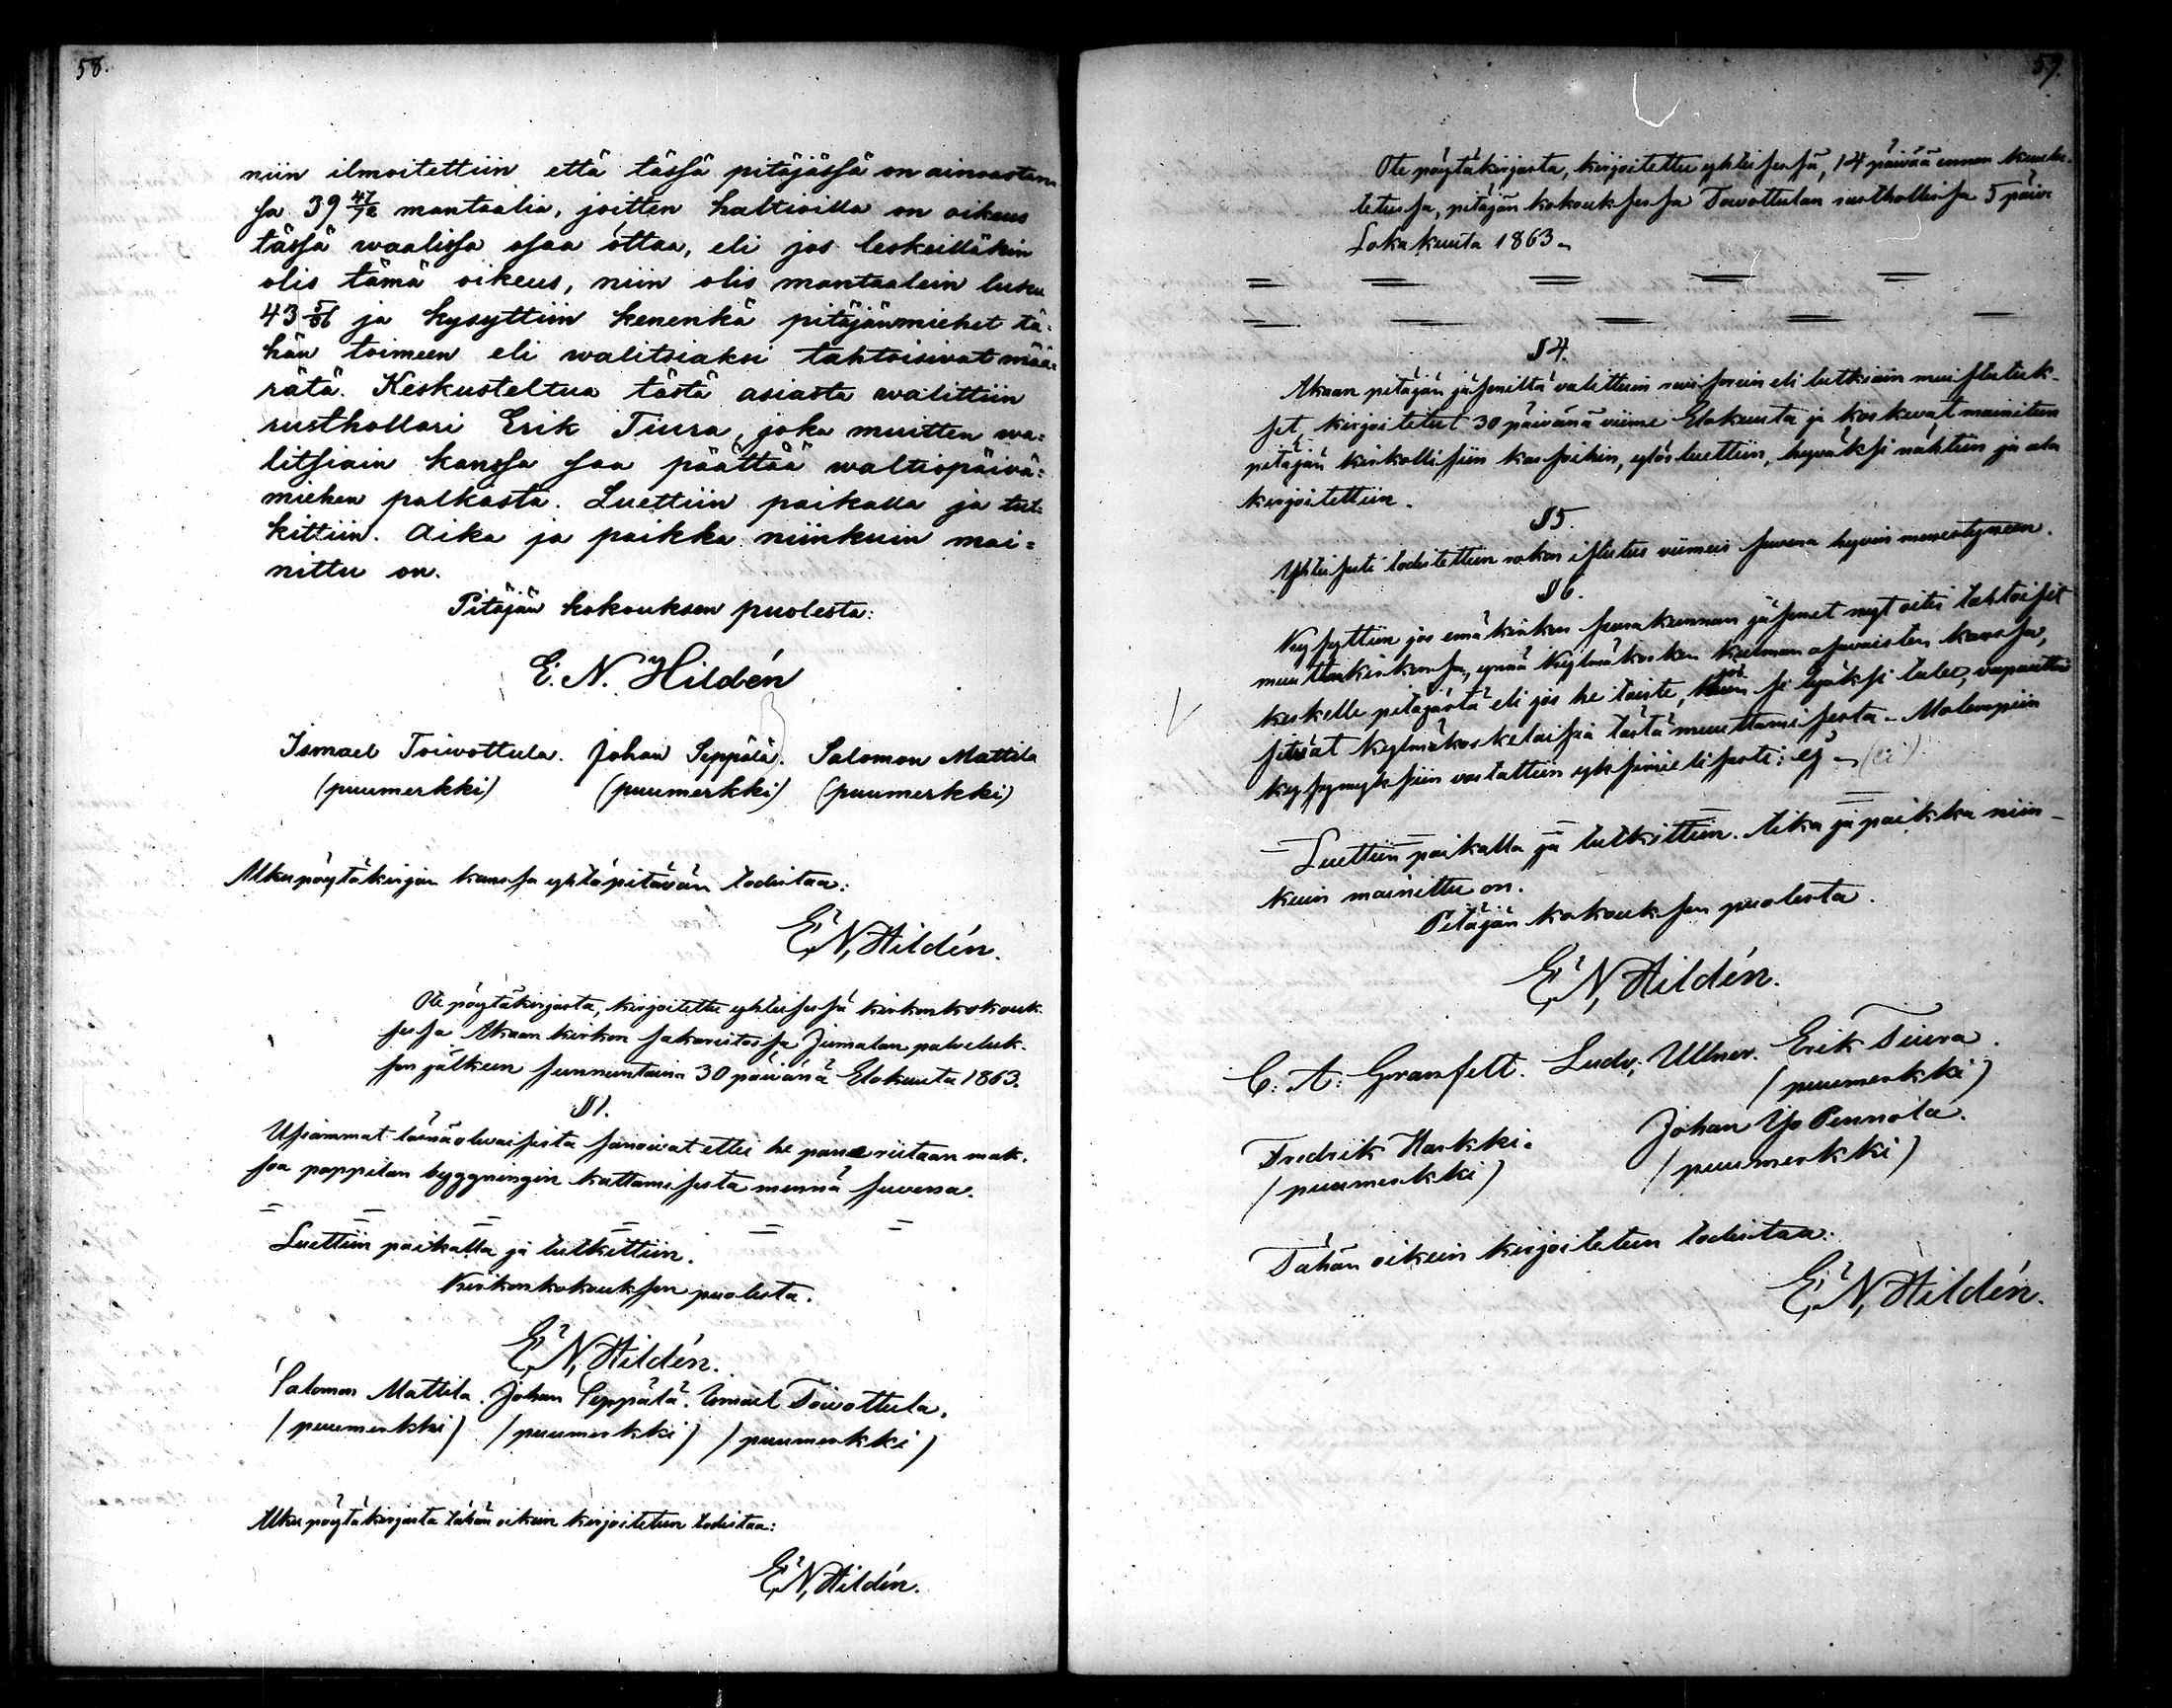 58.
niin ilmoitettiin että tässä pitäjässä on ainoastan-
sa 39 47/72 mantaalia, joitten haltioilla on oikeus
tässä waalissa osaa ottaa, eli jos leskeilläkin
olis tämä oikeus, niin olis mantaalein luku
43 5/36 ja kysyttiin kenenkä pitäjänmiehet tä-
hän toimeen eli walitsiaksi tahtoisivat mää-
rätä. Keskusteltua tästä asiasta walittiin
rusthollari Erik Tiura, joka muitten wa-
litsiain kanssa saa päättää waltiopäivä-
miehen palkasta. Luettiin paikalla ja tut-
kittiin. Aika ja paikka niinkuin mai-
nittu on.
Pitäjän kokouksen puolesta:
E. N. Hildén
Ismael Toivottula. Johan Seppälä. Salomon Mattila
(puumerkki) (puumerkki) (puumerkki)
Alkupöytäkirjan kanssa yhtäpitävän todistaa:
E. N. Hildén.
Ote pöytäkirjasta, kirjoitettu yhteisessä kirkonkokouk-
sessa Akaan kirkon sakaristossa Jumalan palveluk-
sen jälkeen sunnuntaina 30 päivänä Elokuuta 1863.
§1.
Usiammat läsnäolevaisista sanoivat ettei he pane riitaan mak-
soa pappilan byggningin kattamisesta mennä suvena.
Luettiin paikalla ja tutkittiin.
Kirkonkokouksen puolesta.
E. N. Hildén.
Salomon Mattila. Johan Seppälä. Ismael Toivottula.
(puumerkki) (puumerkki) (puumerkki)
Alkupöytäkirjasta tähän oikein kirjoitetun todistaa:
E. N. Hildén.
59.
Ote pöytäkirjasta, kirjoitettu yhteisessä, 14 päivää ennen kuulu-
tetussa, pitäjän kokouksessa Toivottulan rusthollissa 5 päiv.
Lokakuuta 1863.
§4.
Akaan pitäjän jäseniltä valittuin revisorein eli tutkiain muistutuk-
set, kirjoitetut 30 päivänä viime Elokuuta ja koskevat mainitun
pitäjän kirkollisiin kassoihin, ylösluettiin, hyväksi nähtiin ja ala
kirjoitettiin.
§5.
Yhteisesti todistettiin rokon istutus viimeis suvena hyvin menestyneen.
§6.
Kysyttiin jos emäkirkon seurakunnan jäsenet nyt oitis tahtoisit
muuttaa kirkonsa, ynnä Kylmäkosken kulman asuvaisten kanssa,
keskelle pitäjästä eli jos he taiste, jos se työksi tulee, vapautta
sitvät kylmäkoskelaisia tästä muuttamisesta. Molempiin
kysymyksiin vastattiin yksimielisesti: ej (ei)
Luettiin paikalla ja tutkittiin. Aika ja paikka niin-
kuin mainittu on.
Pitäjän kokouksen puolesta.
E. N. Hildén.
C. A. Granfelt. Ludv. Ullner. Erik Tiura.
(puumerkki)
Fredrik Harkki. Johan Yp Pennola.
(puumerkki) (puumerkki)
Tähän oikein kirjoitetun todistaa:
E. N. Hildén.